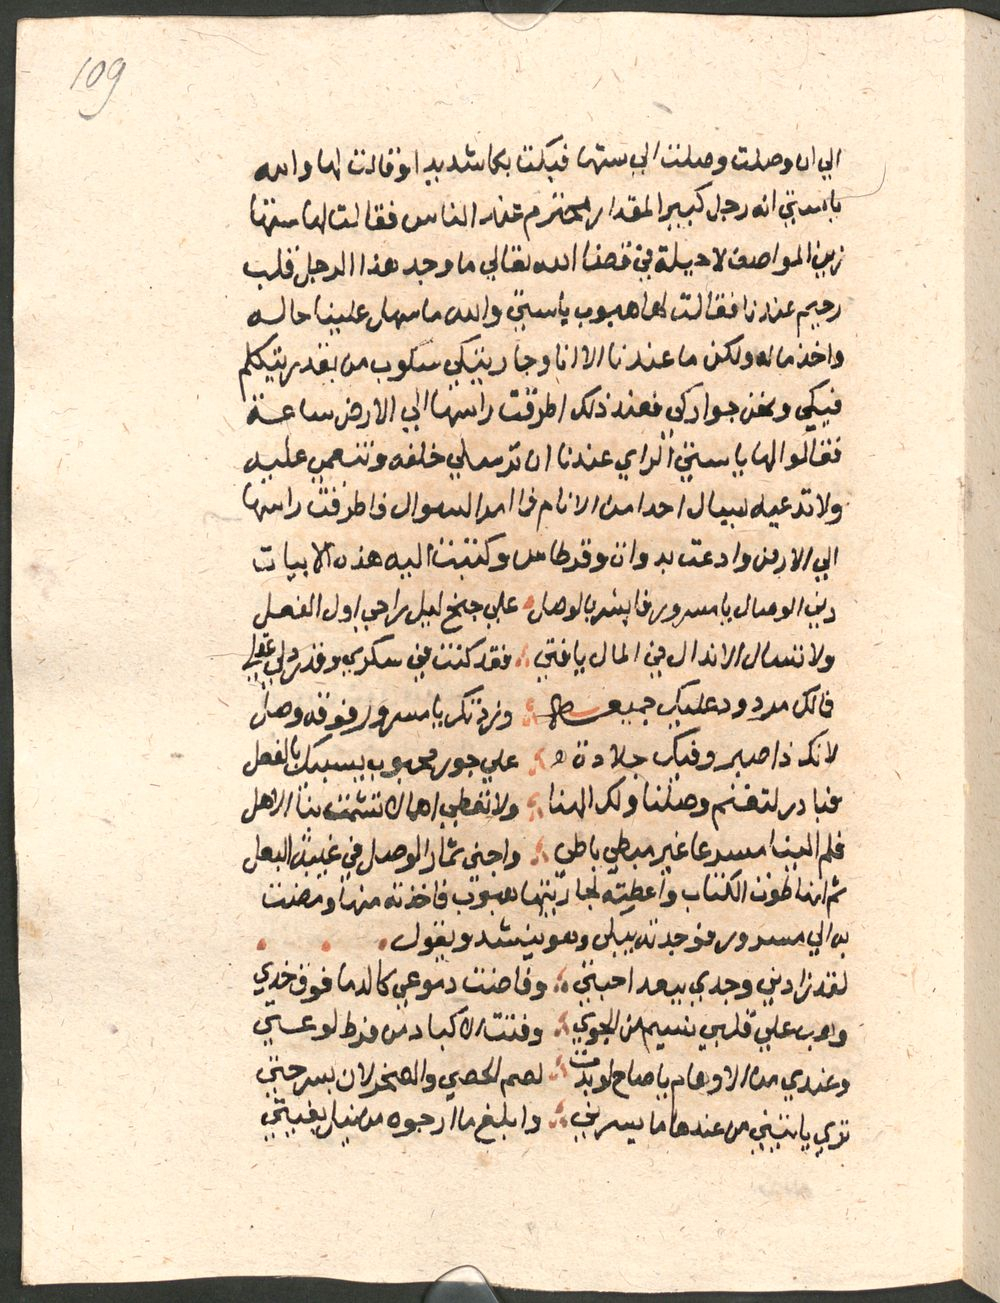 109
الي ان وصلت وصلت الي ستها فبكت بكا شديدا وقالت لها والله
يا ستي انه رجل كبير المقدار محترم عند الناس فقالت لها ستها
زين المواصف لا حيلة في قضا الله تعالي ما وجد هذا الرجل قلب
رحيم عندنا فقالت لها هبوب يا ستي والله ما سهل علينا حاله
واخذ ماله ولكن ما عندنا الا انا وجاريتكي سكوب من يقدر يتكلم
فيكي ونحن جواركي فعند ذلك اطرقت راسها الي الارض ساعة
فقالوا لها يا ستي الراي عندنا ان ترسلي خلفه وتنعمي عليه
ولا تدعيه يسال احدا من الانام فما امر السوال فاطرقت راسها
الي الارض وادعت بدواة وقرطاس وكتبت اليه هذه الابيات
دني الوصال يا مسرور فابشر بالوصل علي جنح ليل راجي اول الفصل
ولا تسال الاندال في المال يا فتي فقد كنت في سكري وقد رد لي عقلي
فمالك مردود عليك جميعه وزدتك يا مسرور فوقه وصل
لانك ذا صبر وفيك جلادة علي جور محبوب يسبيك بالفعل
فبادر لتغنم وصلنا ولك الهنا ولا تعطي اهمالا تشمت بنا الاهل
هلم الينا مسرعا غير مبطي باطي واجني ثمار الوصل في غيبة البعل
ثم انها طوت الكتاب واعطته لجاريتها هبوب فاخذته منها ومضت
به الي مسرور فوجدته يبكي وهو ينشد ويقول
لقد زادني وجدي ببعد احبتي وفاضت دموعي كالدما فوق خدي
وهب علي قلبي نسيم من الجوي وفتت الاكباد من فرط لوعتي
وعندي من الاوهام يا صاح لو بدت لصم الحصي والصخر لان بسرعتي
تري ياتيني من عندها ما يسرني وابلغ ما ارجوه من نيل بغيتي